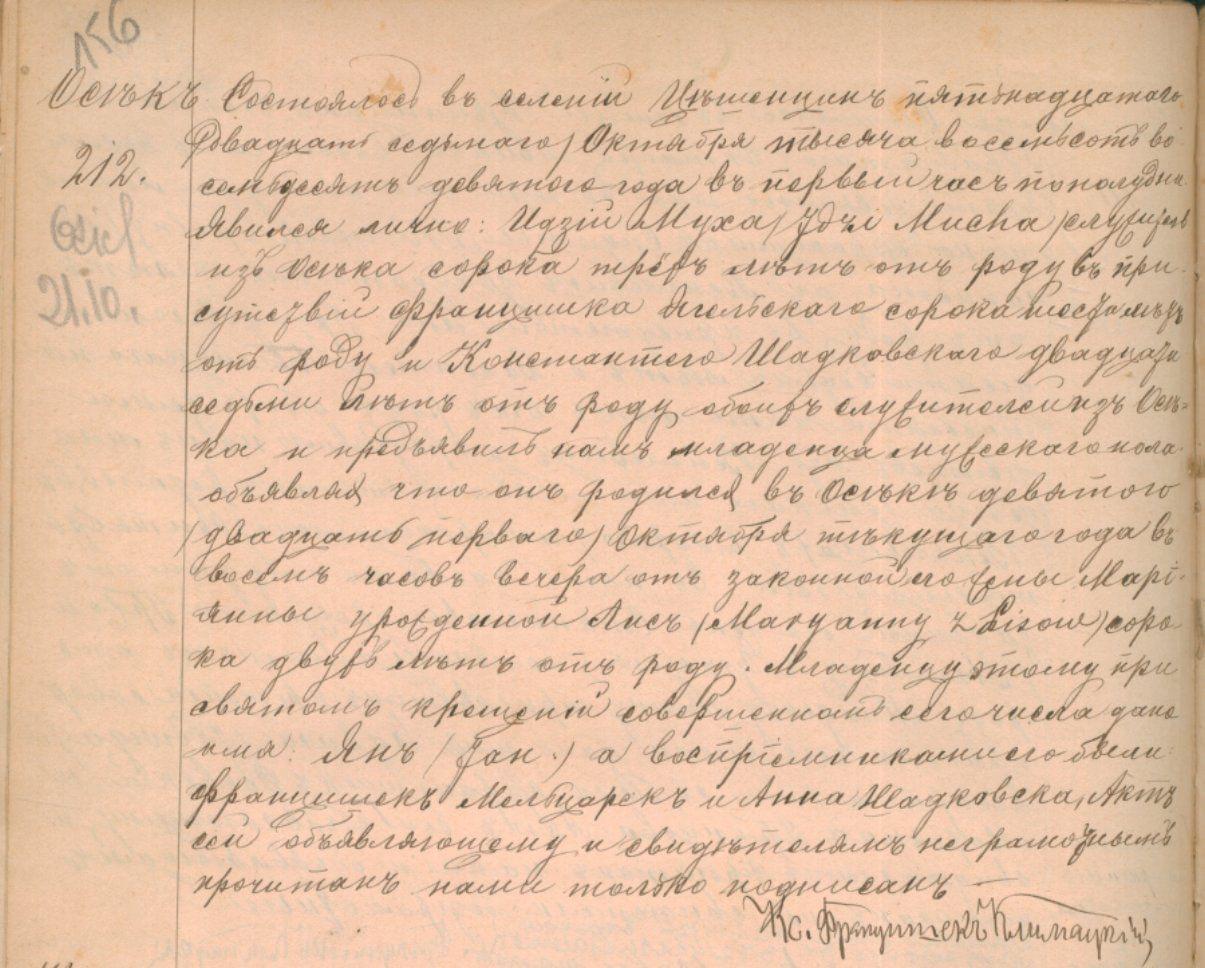 156
Осѣкъ Состоялось въ селеніи Цѣшенцинъ пятнадцатаго
212. /двадцать седьмаго/ Октября тысяча восемьсотъ во-
семьдесятъ девятого года въ первый часъ пополудни.
Явился лично: Идзій Муха /Idzi Mucha/ служитель
изъ Осѣка сорока трёхъ лѣтъ отъ роду въ при-
21.10. сутствіи Францишка сорока шести лѣтъ
отъ роду и Константего Шадковскаго двадцати
седьми лѣтъ отъ роду обоихъ служителей изъ Осѣ-
ка и предъявилъ намъ младенца мужескаго пола
объявляя что онъ родился въ Осѣкѣ девятого
/двадцать перваго/ Октября тѣкущаго года въ
восемъ часовъ вечера отъ законной его жены Марі-
янны урожденной Лисъ /Maryanny z Lisow/ соро-
ка двухъ лѣтъ отъ роду. Младенцу этому при
святомъ крещеніи совершенномъ сего числа дано
имя: Янъ /Jan./ а воспріемниками его были:
Францишекъ Мельцарекъ и Анна Шадковска, Актъ
сей объявляющему и свидѣтелямъ неграмотнымъ
прочитанъ нами только подписанъ —
Кс. Францишекъ